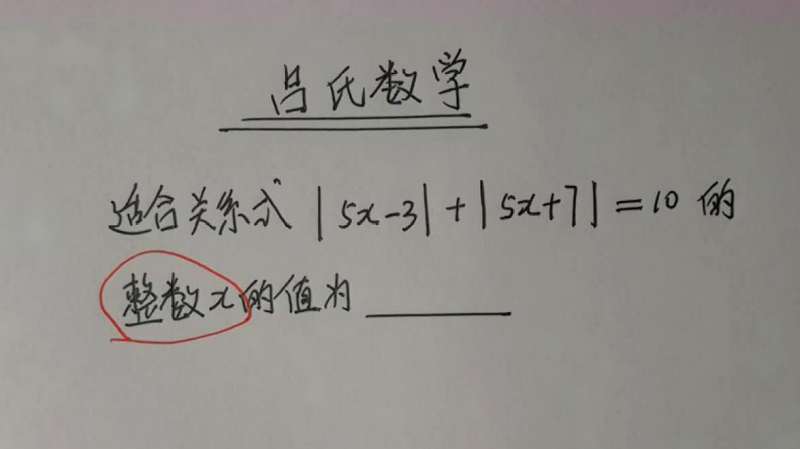 吕氏数学
适合关系式 |5x-3|+|5x+7|=10 的
整数x的值为 ______